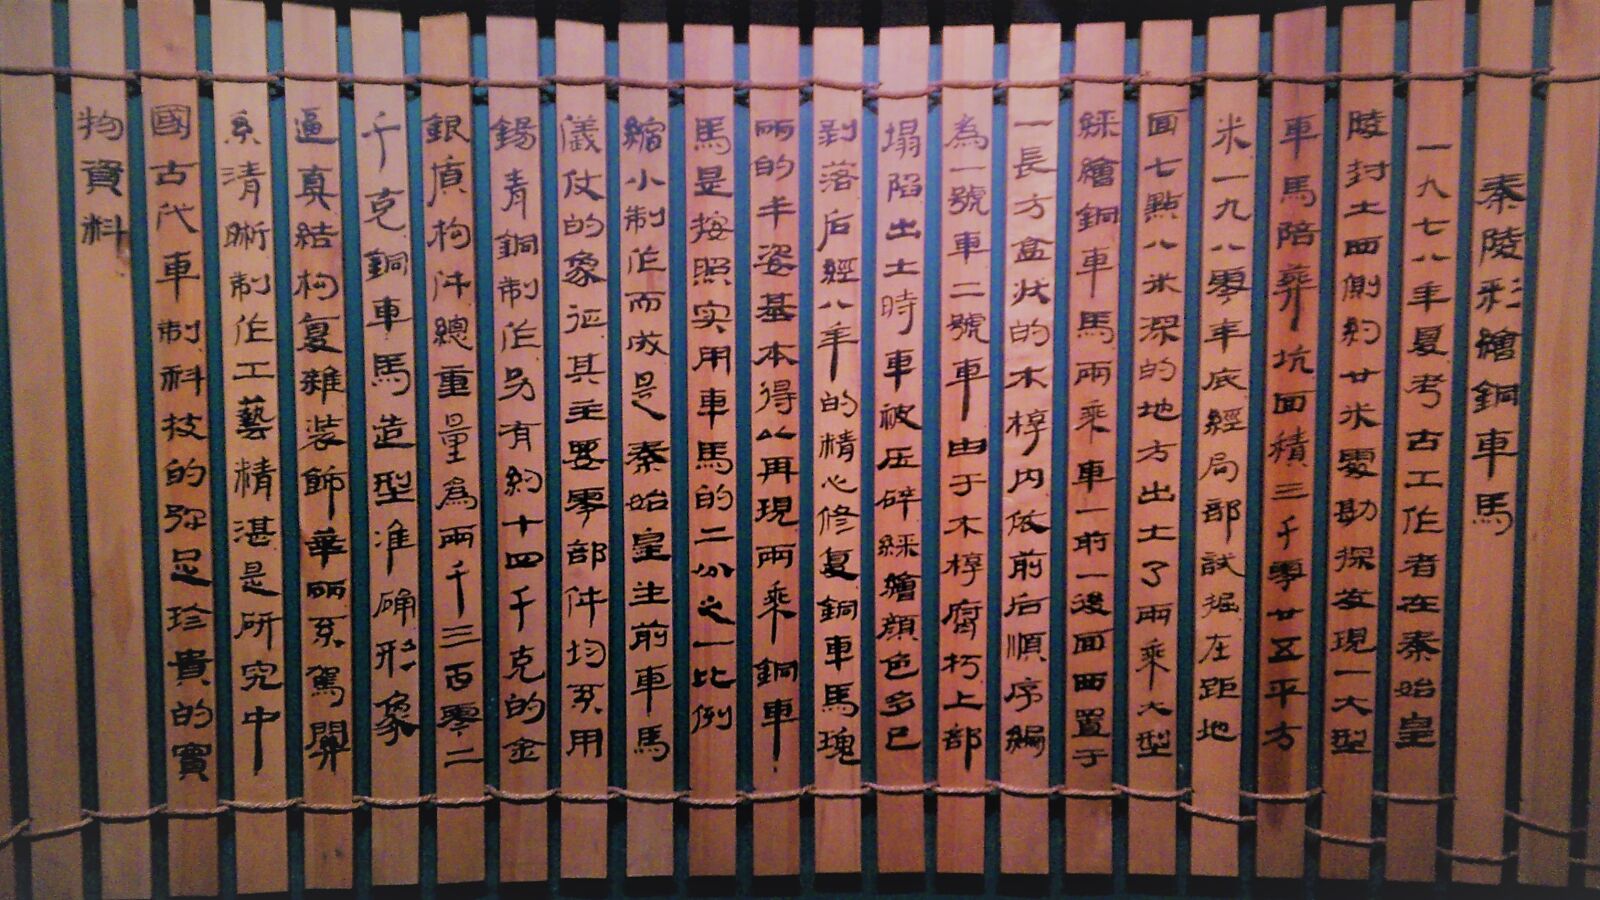 秦陵彩繪銅車馬
一九七八年夏考古工作者在秦始皇
陵封土西側約廿米處勘探发現一大型
車馬陪葬坑面積三千零廿五平方
米一九八零年底經局部試掘在距地
面七點八米深的地方出土了兩乘大型
綵繪銅車馬兩乘車一前一後面西置于
一長方盒狀的木椁内依前后順序編
為一號車二號車由于木椁腐朽上部
塌陷出土時車被压碎綵繪顔色多已
剥落后經八年的精心修复銅車馬瑰
丽的丰姿基本得以再現兩乘銅車
馬是按照实用車馬的二分之一比例
縮小制作而成是秦始皇生前車馬
儀仗的象征其主要零部件均系用
錫青銅制作另有約十四千克的金
銀質构件總重量爲兩千三百零二
千克銅車馬造型准确形象
逼真結构复雜装飾華丽系駕關
系清晰制作工藝精湛是研究中
國古代車制科技的弥足珍貴的實
物資料